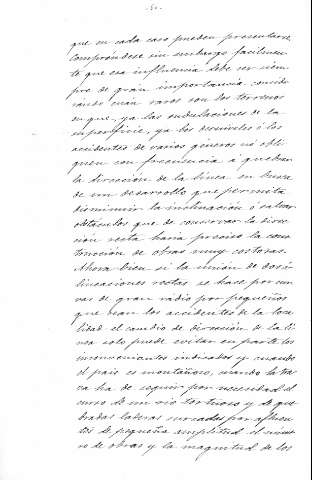 que en cada caso pueden presentarse.
Compréndese sin embargo facilmen-
te que esa influencia debe ser siem-
pre de gran importancia conside-
rando cuan raros son los terrenos
en que, ya las ondulaciones de la
superficie, ya los desniveles ó los
accidentes de varios géneros no obli-
guen con frecuencia á quebrar
la direccion de la linea en busca
de un desarrollo que permita
disminuir la inclinación ó salvar
obstáculos que de conservar la direc-
ción recta haria preciso la cons-
trucción de obras muy costosas.
Ahora bien si la unión de dos a-
lineaciones rectas se hace por cur-
vas de gran radio por pequeños
que sean los accidentes de la loca-
lidad el cambio de dirección de la li-
nea solo puede evitar en parte los
inconvenientes indicados y cuando
el pais es montañoso, cuando la tra-
za ha de seguir por necesidad el
curso de un rio tortuoso y de que-
bradas laderas surcadas por afluen-
tes de pequeña amplitud el núme-
ro de obras y la magnitud de los